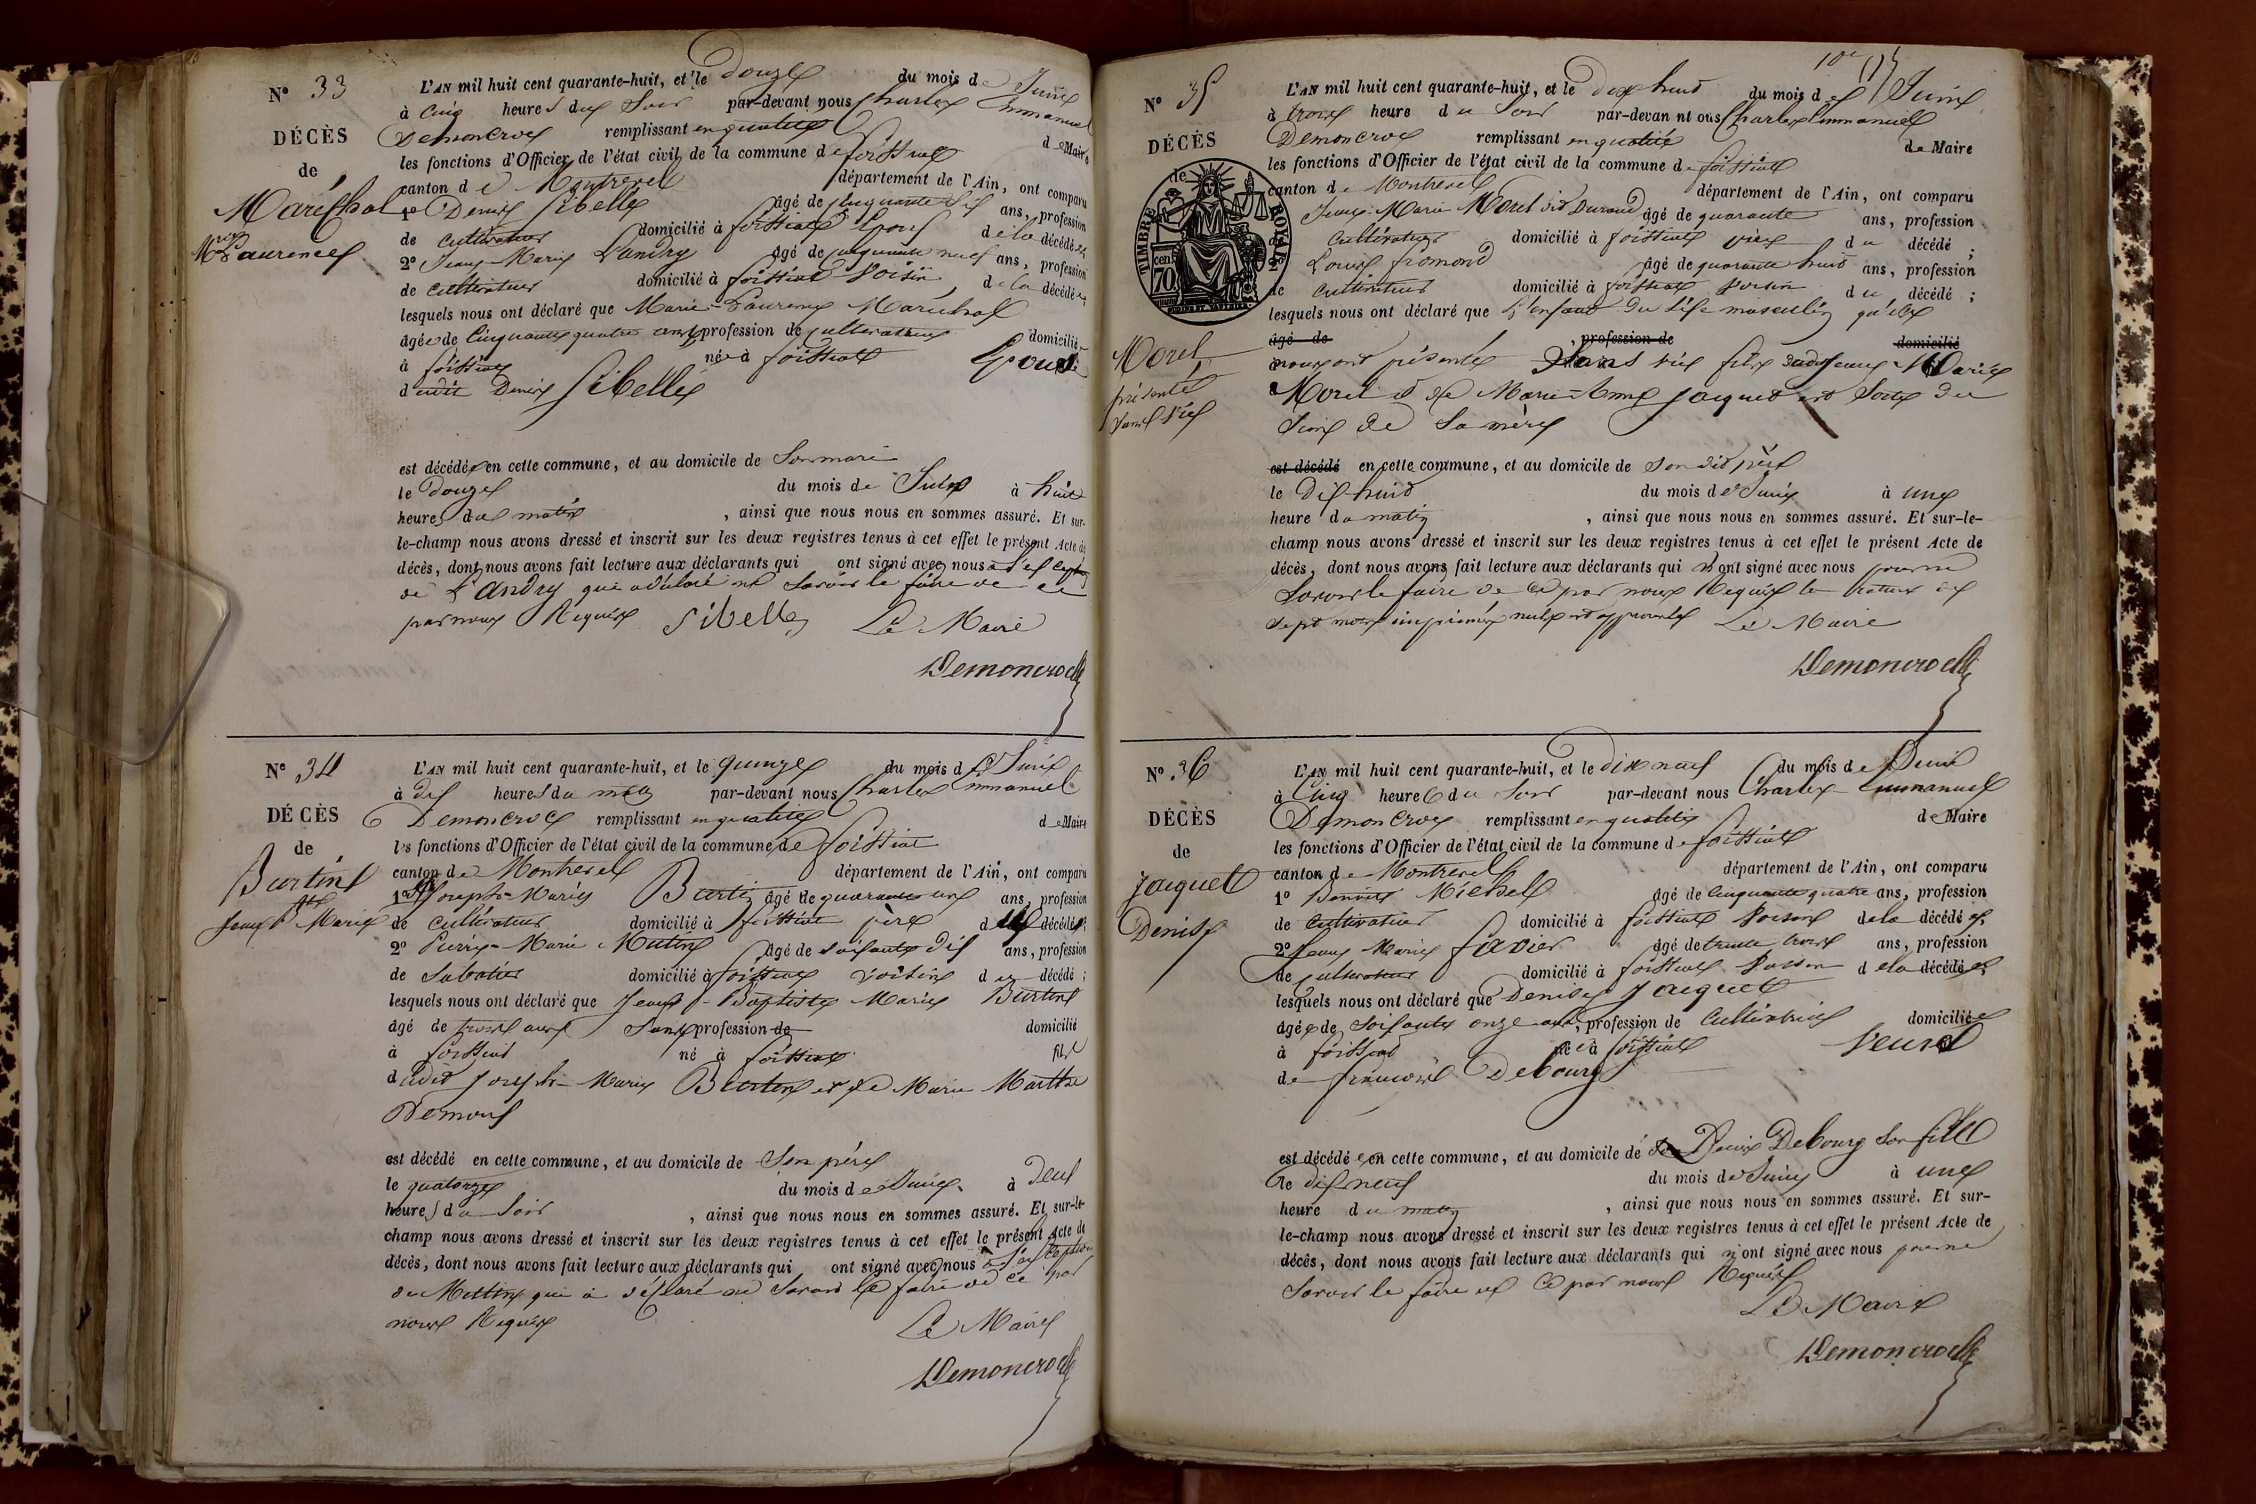 N° 33
DÉCÈS
de
Maréchal
Mie Laurence
L'AN mil huit cent quarante-huit, et le douze du mois de Juin
à cinq heures du Soir par-devant nous Charles Emmanuel
Demoncroc remplissant en qualité de Maire
les fonctions d'Officier de l'état civil de la commune de foissiat
canton de Montrevel département de l'Ain, ont comparu
1° Denis Sibelle âgé de cinquante six ans, profession
de cultivateur domicilié à foissiat Epoux de la décédée,
2° Jean Marie Landry âgé de cinquante neuf ans, profession
de cultivateur domicilié à foissiat Voisin de la décédée;
lesquels nous ont déclaré que Marie-Laurence Maréchal
âgée de Cinquante quatre ans profession de cultivatrice domiciliée
à foissiat née à foissiat Epouse
dudit Denis Sibelle
est décédée en cette commune, et au domicile de Son mari
le douze du mois de Juin à huit
heures du matin , ainsi que nous nous en sommes assuré. Et sur-
le-champ nous avons dressé et inscrit sur les deux registres tenus à cet effet le présent Acte de
décès, dont nous avons fait lecture aux déclarants qui ont signé avec nous
de Landry qui a déclaré ne Savoir le faire de ce
par nous Requis Sibelle Le Maire
Demoncroc
N° 34
DÉCÈS
de
Burtin
Jean Bte Marie
L'AN mil huit cent quarante-huit, et le quinze du mois de Juin
à dix heures du matin par-devant nous Charles Emmanuel
Demoncroc remplissant en qualité de Maire
les fonctions d'Officier de l'état civil de la commune de foissiat
canton de Montrevel département de l'Ain, ont comparu
1° Joseph-Marie Burtin âgé de quarante un ans, profession
de cultivateur domicilié à foissiat père du décédé;
2° Pierre-Marie Mutin âgé de soixante dix ans, profession
de Sabotier domicilié à foissiat voisin du décédé;
lesquels nous ont déclaré que Jean-Baptiste Marie Burtin
âgé de trois ans Sans profession de domicilié
à foissiat né à foissiat fils
dudit Joseph-Marie Burtin et de Marie Marthe
Demons
est décédé en cette commune, et au domicile de Son père
le quatorze du mois de Juin à deux
heures du Soir , ainsi que nous nous en sommes assuré. Et sur-le-
champ nous avons dressé et inscrit sur les deux registres tenus à cet effet le présent Acte de
décès, dont nous avons fait lecture aux déclarants qui ont signé avec nous à l'exception
de Mutin qui a déclaré ne Savoir le faire de ce par
nous Requis Le Maire
Demoncroc
N° 35
DÉCÈS
de
TIMBRE ROYAL
70 cent.
Morel,
présenté
Sans Vie
L'AN mil huit cent quarante-huit, et le dix huit du mois de Juin
à trois heure du Soir par-devan nt ous Charles Emmanuel
Demoncroc remplissant en qualité de Maire
les fonctions d'Officier de l'état civil de la commune de foissiat
canton de Montrevel département de l'Ain, ont comparu
Jean-Marie Morel dit Durand âgé de quarante ans, profession
de cultivateur domicilié à foissiat père du décédé;
Louis fromond âgé de quarante huit ans, profession
de cultivateur domicilié à foissiat Voisin du décédé;
lesquels nous ont déclaré que L'enfant du Sexe masculin qu'ils
âgé de , profession de domicilié
nous ont présenté Sans vie fils dudit Jean-Marie
Morel et de Marie-Anne Jacquet est Sorti du
Sein de Sa mère
est décédé en cette commune, et au domicile de Son dit père
le dix huit du mois de Juin à une
heure du matin , ainsi que nous nous en sommes assuré. Et sur-le-
champ nous avons dressé et inscrit sur les deux registres tenus à cet effet le présent Acte de
décès, dont nous avons fait lecture aux déclarants qui n'ont signé avec nous pour ne
Savoir le faire de ce par nous Requis la rature de
Sept mots imprimés nuls est approuvée Le Maire
Demoncroc
N° 36
DÉCÈS
de
Jacquet
Denise
L'AN mil huit cent quarante-huit, et le dix neuf du mois de Juin
à Cinq heures du Soir par-devant nous Charles Emmanuel
Demoncroc remplissant en qualité de Maire
les fonctions d'Officier de l'état civil de la commune de foissiat
canton de Montrevel département de l'Ain, ont comparu
1° Benoit Michel âgé de Cinquante quatre ans, profession
de Cultivateur domicilié à foissiat Voisin de la décédée,
2° Jean Marie favier âgé de trente trois ans, profession
de cultivateur domicilié à foissiat Voisin de la décédée;
lesquels nous ont déclaré que Denise Jacquet
âgée de Soixante onze ans, profession de Cultivatrice domiciliée
à foissiat née à foissiat Veuve
de françois Debourg
est décédée en cette commune, et au domicile de Denis Debourg Son fils
le dix neuf du mois de Juin à une
heure du matin , ainsi que nous nous en sommes assuré. Et sur-
le-champ nous avons dressé et inscrit sur les deux registres tenus à cet effet le présent Acte de
décès, dont nous avons fait lecture aux déclarants qui n'ont signé avec nous pour ne
Savoir le faire de ce par nous Requis
Le Maire
Demoncroc